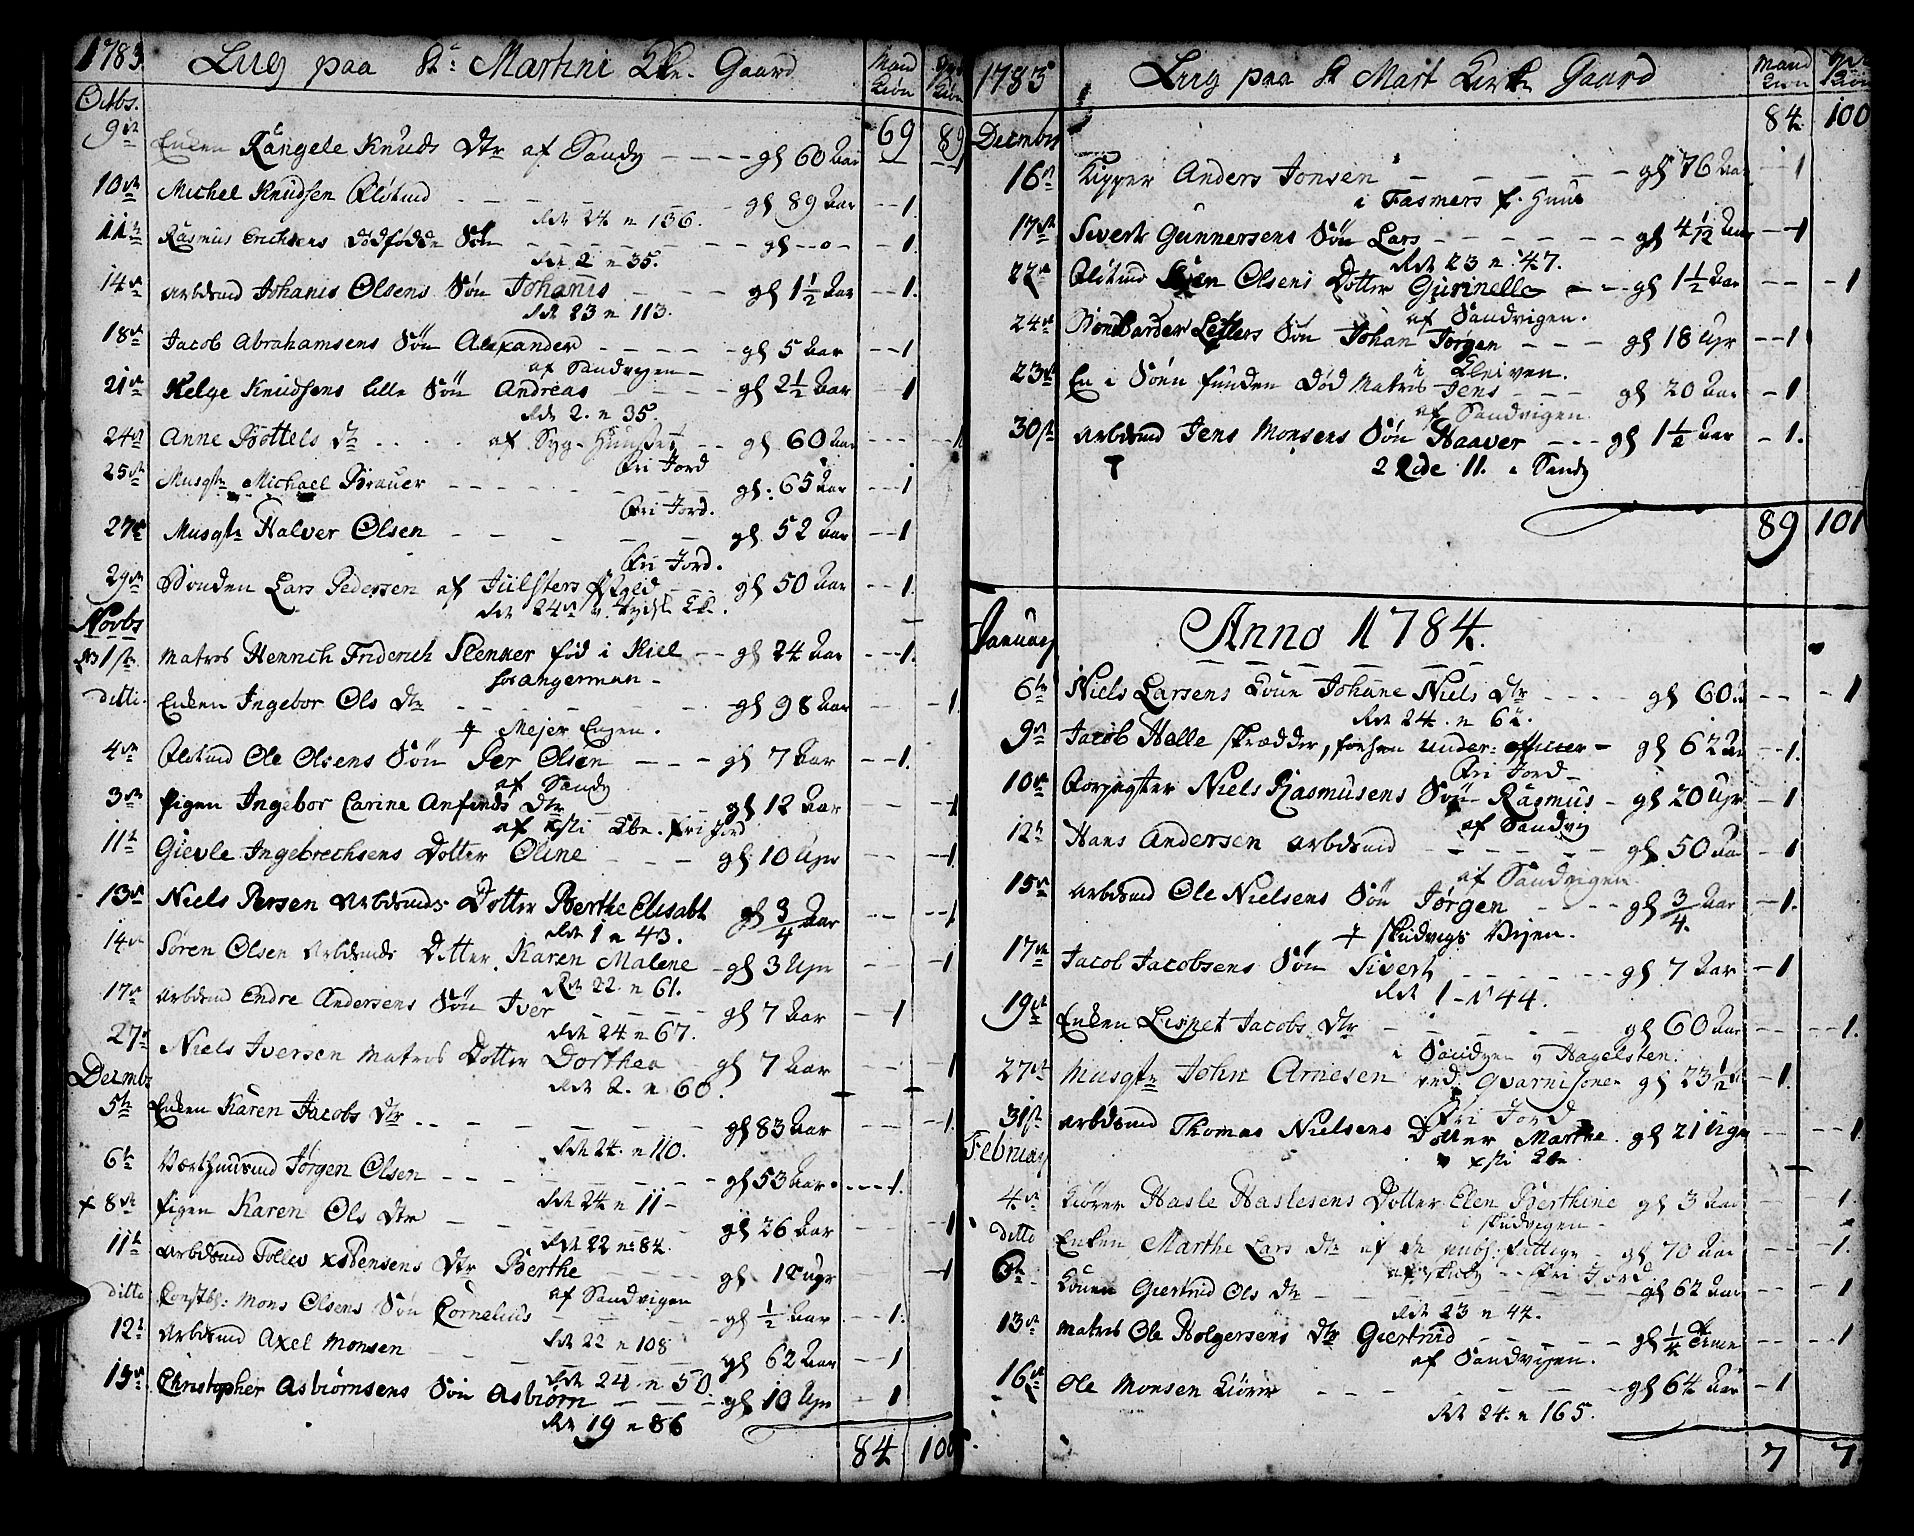 1783 Liig paa St: Martini Kke. Gaard Mand Kiøn Qvi Kiøn
Octbr.
69 89
9de Enken Rangele Knuds Dtr af Sandv - - - - gl 60 Aar 1
10de Michel Knudsen Flötmd - - - gl 89 Aar - - 1.
Rdt 24 n 136.
11te Rasmus Erichsens dödfödde Sön - - - gl - - o - - 1.
Rdt 2 n 35.
14de Arbdsmd Johanis Olsens Sön Johanis - - - gl 1 1/2 Aar - - 1.
Rdt 23 n 113.
18de Jacob Abrahamsens Sön Alexander - - - - gl 5 Aar - - 1
af Sandvigen -
21de Helge Knudsens lille Sön Andreas - - - gl 2 1/2 Aar - - 1
Rdt 2. n 35.
24de Anne Bottels Dtr . . . . af Syge Huuset - - gl 60 Aar - - - - 1
Fri Jord
25de Musqtr Michael Brauer - - - - - - gl: 65 Aar - - 1
Fri Jord.
27de Musqtr Halver Olsen - - - - - gl 52 Aar - - 1
Fri Jord.
29de Bonden Lars Pedersen af Jülsters - - gl 50 Aar - - 1.
Rdt 24de v. Tydsk Kk.
Novbr
1ste Matros Henrich Friderich Slenner fød i Kiel - - gl 24 Aar - - 1.
for angerman -
ditti. Enken Ingebor Ols Dtr - - - - - gl 98 Aar - - - 1.
† Mejer Engen.
4de Flotmd Ole Olsens Sön Per Olsen - - - gl 7 Aar - - 1.
af Sandv
3de Pigen Ingebor Carine Anfinds Dtr - - - gl 12 Aar - - - 1
af xsti Kke. fri jord
11te Gievle Ingebrechtsens Dotter Oline - - - gl 10 Ugr - - - 1
13de Niels Persen Arbdsmds Dotter Berthe Elisabt gl 3/4 Aar - - - 1
Rdt 1 n 43.
14de Sören Olsen Arbdsmds Dotter Karen Malene - gl 3 Ugr - - 1
Rdt 22. n 61.
17de Arbdsmd Endre Andersens Sön Iver - - - gl 7 Aar - - 1
Rdt 24 n 67.
27de Niels Iversen Matros Dotter Dorthea gl 7 Aar - - 1
Rdt 2. n 60.
Decmbr
5te Enken Karen Jacobs Dtr . . - - - - gl 83 Aar - - - 1.
Rdt 24. n 110.
6te Værthuusmd Jörgen Olsen - - - - - gl 53 Aar. - - - 1.
Rdt 24 n 11 -
x 8de Pigen Karen Ols Dtr - - - - - gl 26 Aar - - 1
Rdt 22 n 84.
11te Arbdsmd Tollev xstensens Dtr Berthe - - - gl 10 ugr - - 1
af Sandvigen
ditto Constbl: Mons Olsens Sön Cornelius - - - gl 1/2 Aar - - 1.
Rdt 22 n 108
12te Arbdsmd Axel Monsen - - - - gl 62 Aar - - 1
Rdt 24 n 50.
15de Christopher Asbiörnsens Sön Asbiörn - - - gl 10 Ugr - 1
Rdt 19 n 86
84 100
1783 Liig paa St Mart Kirke Gaard Mand Kiøn Qvi Kiøn
84 100
Decmbr
16de Kipper Anders Jonsen - - - - - gl 76 Aar - - 1
i Fasmers p. Huus
17de Sivert Gunnersens Sön Lars - - - - - gl 4 1/2 Aar - - 1
Rdt 23 n 47.
22de Flotmd Sven Olsens Dotter Gurinelle - - gl 1 1/2 Aar - - - 1
af Sandvigen.
24de Bombarder Letlers Sön Johan Jörgen - - - gl 18 Ugr - - 1
i Kleiven.
23de En i Söen funden död Matros Jens - - - gl 20 Aar - 1
af Sandvigen
30te Arbdsmd Jens Monsens Sön Haaver - - - gl 1 1/2 Aar - 1.
2 Rde 11. i Sandv
89 101
Anno 1784.
January
6te Niels Larsens Kone Johane Niels Dtr - - - gl 60. - - - 1
Rdt 24. n 62.
9de Jacob Halle skrædder, forhen under: officeer - gl 62 Aar - - 1.
Fri Jord -
10de Niels Rasmusens Sön Rasmus - gl 20 Ugr - 1
af Sandvig
12te Hans Andersen Arbdsmd - - - - - gl 50 Aar - 1
af Sandvigen
15de Arbdsmd Ole Nielsens Sön Jörgen - - - - gl 3/4 Aar - 1.
† Skudvigs Vejen.
17de Jacob Jacobsens Sön Sivert - - - - - gl 7 Aar - 1
Rdt 1 - N 44.
19de Enken Lispet Jacobs. Dtr - - - - - gl 60 Aar - - - - 1.
i Sandvgen v Hagelsten.
27de Musqtr John Arnesen ved Gvarnisonen gl 23 1/2 Aar - 1.
Fri Jord
31te Arbdsmd Thomas Nielsens Dotter Marthe. gl 21 Ugr - - - - 1.
xsti Kke
February
4de Kiörer Hasle Haslesens Dotter Elen Berthine gl 3 Aar 1.
i Skudvigen -
ditto Enken Marthe Lars Dtr af de publ: fattige - gl 70 Aar - - - 1.
af Skudv - - Fri Jord
6te Konen Giertrud Ols Dtr - - - - - gl 62 Aar - - - 1
Rdt 23 n 44.
13de Matros Ole Holgersens Dtr Giertrud - - - - gl 1/4 time - - - 1
af Sandvigen.
16de Ole Monsen Kiörer - - - - - - gl 64 Aar - 1
Rdt 24. n 165.
7 7